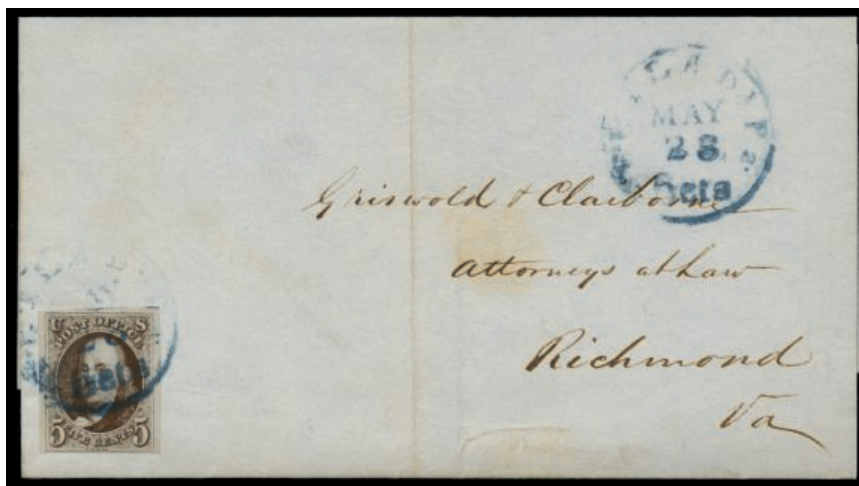 PHILADA Pa.
MAY
28
5cts
Griswold & Claiborne
Attorneys at Law
Richmond
Va
U S
POST OFFICE
5cts
5 FIVE CENTS 5